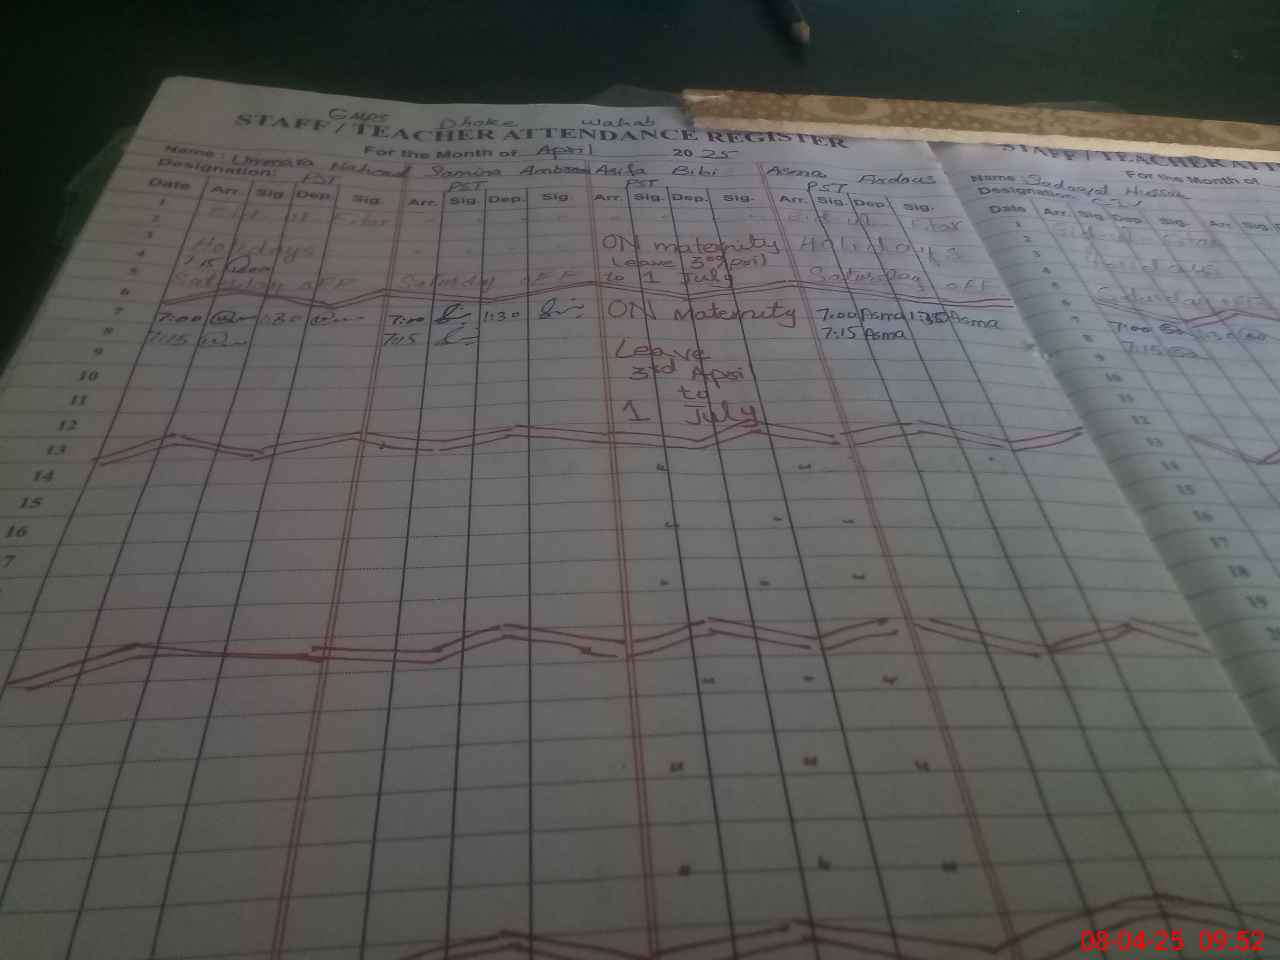 GMPS Dhoke Wahab
STAFF / TEACHER ATTENDANCE REGISTER
For the Month of April 2025
Name: Naheed Samina Asifa Bibi Asma Firdous
Designation: PST PST PST PST
Date Arr. Sig. Dep. Sig. Arr. Sig. Dep. Sig. Arr. Sig. Dep. Sig. Arr. Sig. Dep. Sig.
1
2 Eid ul Fitar Eid ul Fitar
3 Holidays ON maternity Holidays
4 7:15 Leave 3rd April
5 Saturday OFF Saturday OFF to 1 July Saturday off
6
7 7:00 1:30 7:00 1:30 ON Maternity 7:00 Asma 1:35 Asma
8 7:15 7:15 7:15 Asma
9 Leave
10 3rd Apri
11 to
12 1 July
13
14
15
16
7
STAFF / TEACHER ATT
For the Month of
Name: Hussain
Designation:
Date Arr. Sig. Dep. Sig. Arr. Sig.
1 Eid ul Fitar
2
3 Holidays
4
5 Saturday off
6
7 7:00
8 7:15
9
10
11
12
13
14
15
16
17
18
19
08-04-25 09:52